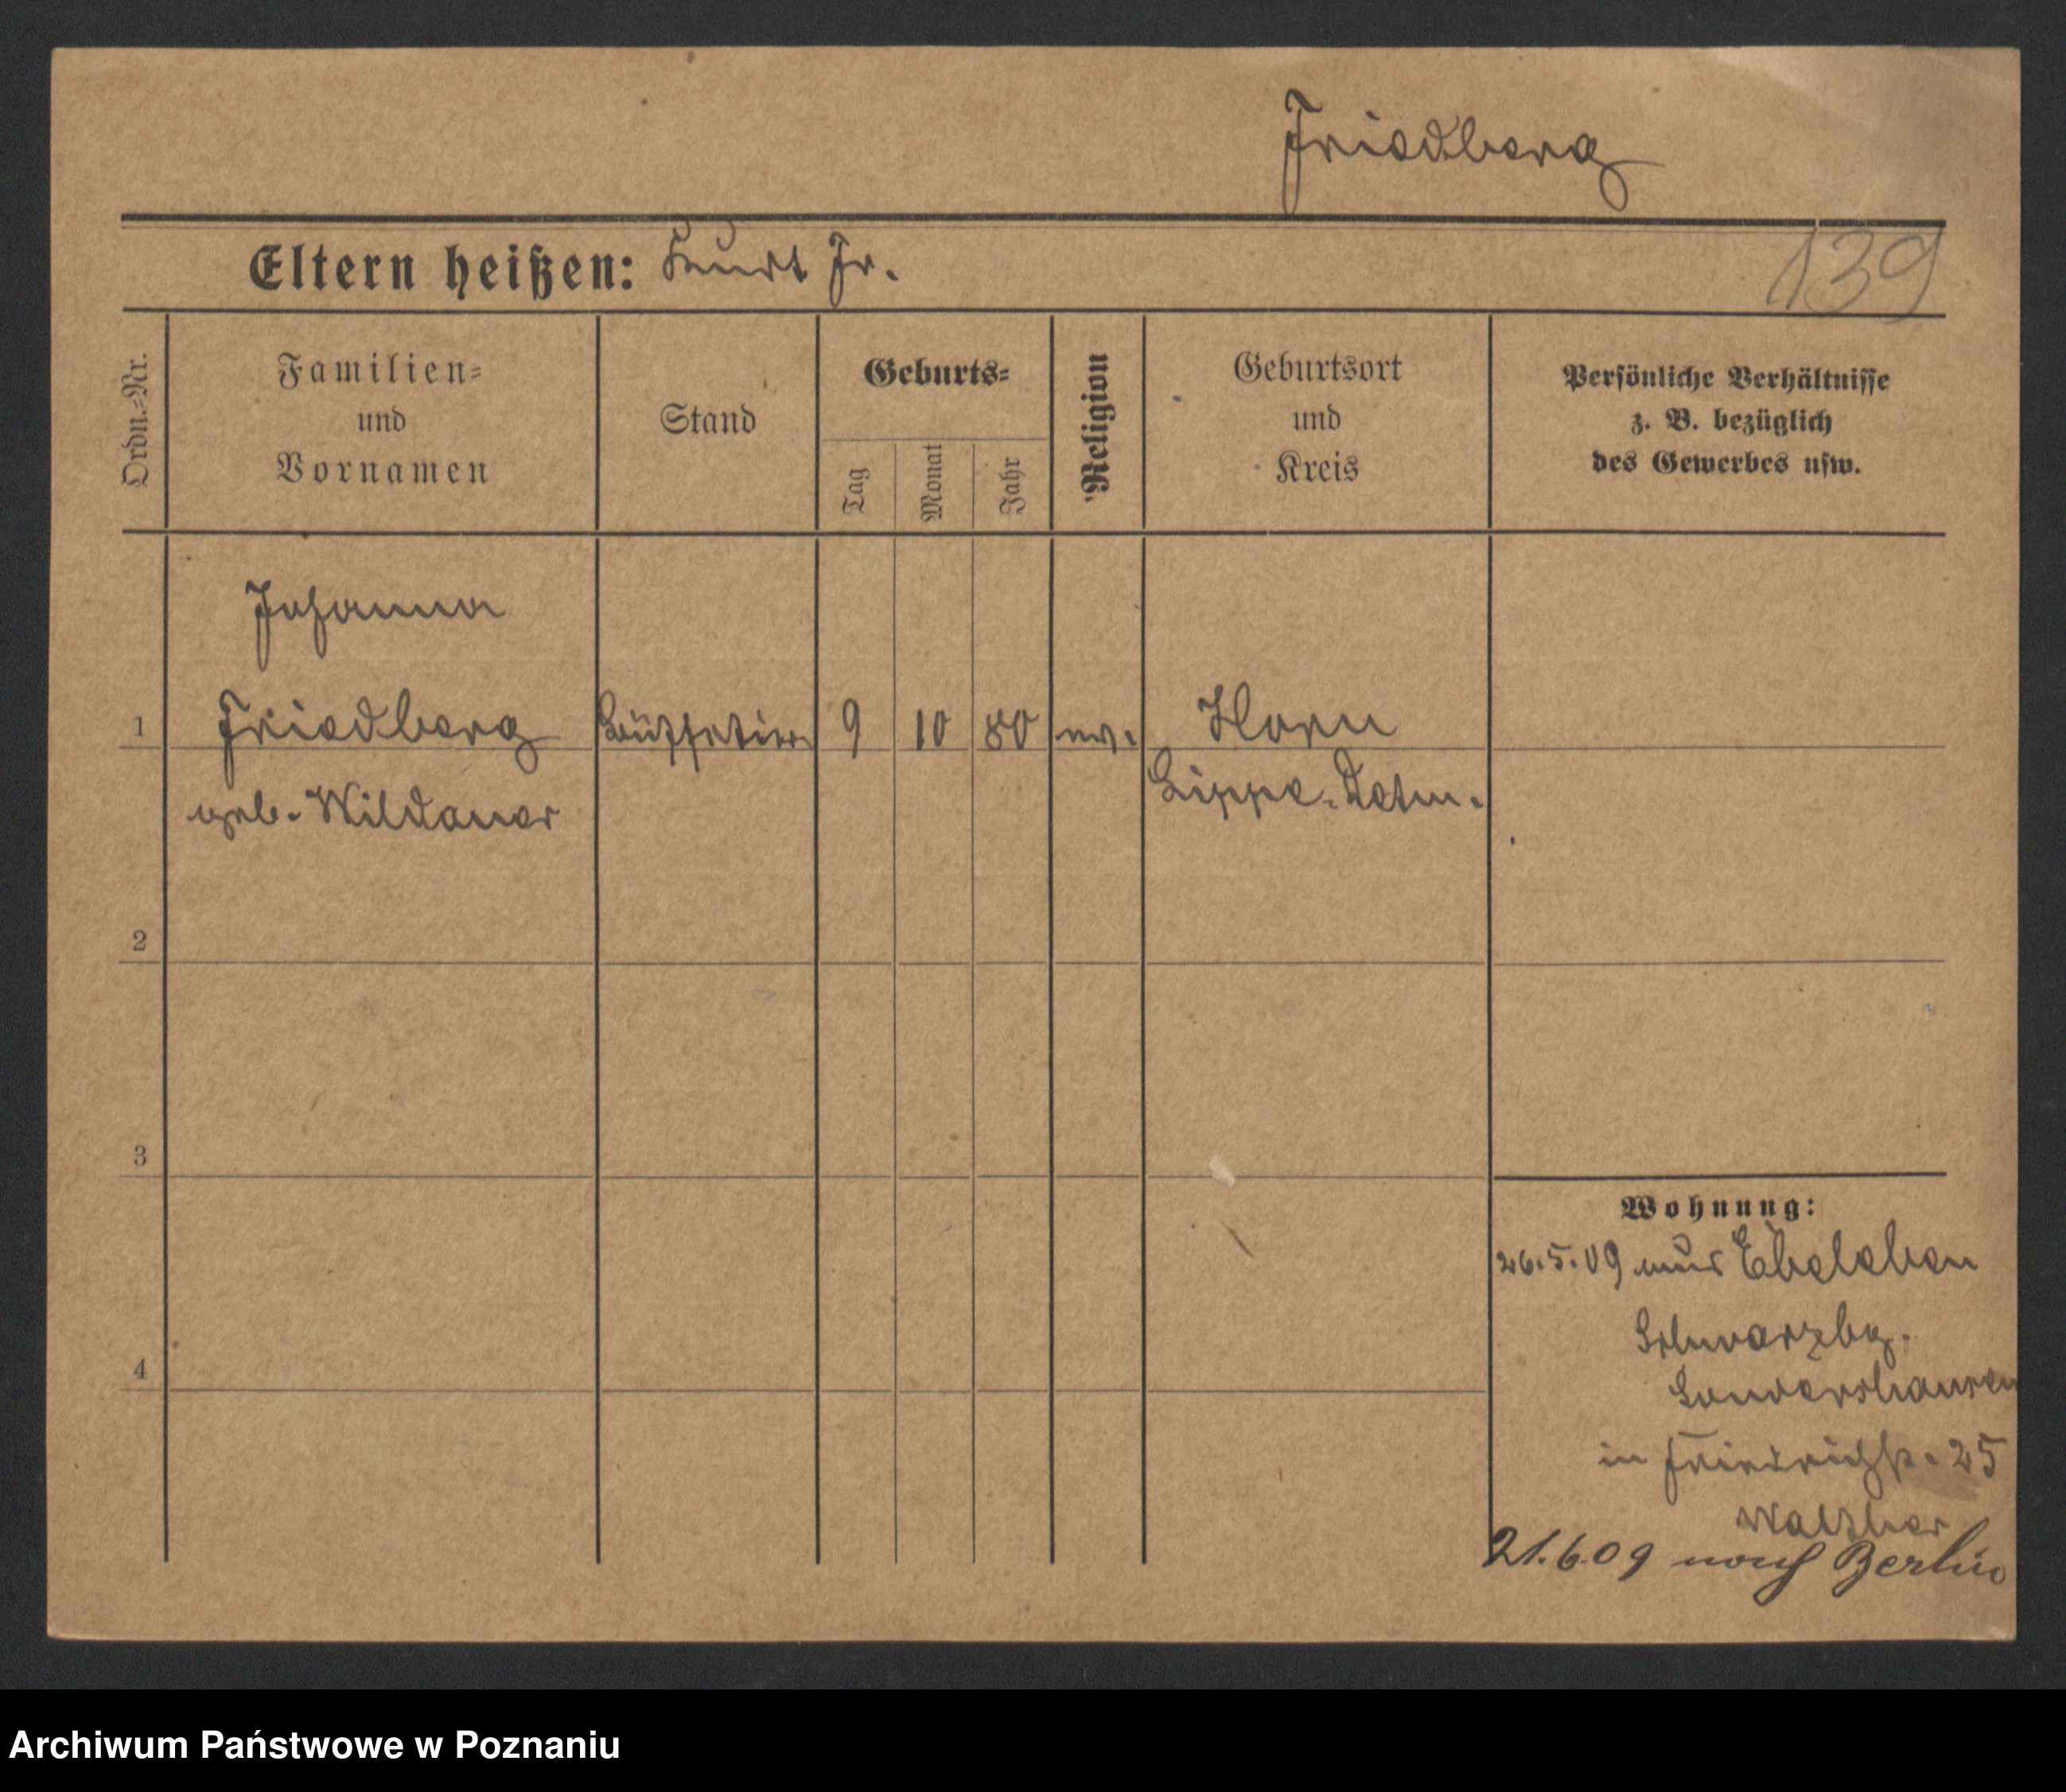 Friedberg
Eltern heißen: Kurt Fr.
139
Ordn.-Nr.
Familien-
und
Vornamen
Stand
Geburts-
Tag
Monat
Jahr
Religion
Geburtsort
und
Kreis
Persönliche Verhältnisse
z. B. bezüglich
des Gewerbes usw.
Johanna
1 Friedberg Büffetier 9 10 80 ev. Horn
geb. Wildauer Lippe-Detm.
2
3
4
Wohnung:
26.5.09 aus Ebeleben
Schwarzbg.
Sondershausen
in Friedrichstr. 25
21.6.09 nach Berlin
Archiwum Państwowe w Poznaniu